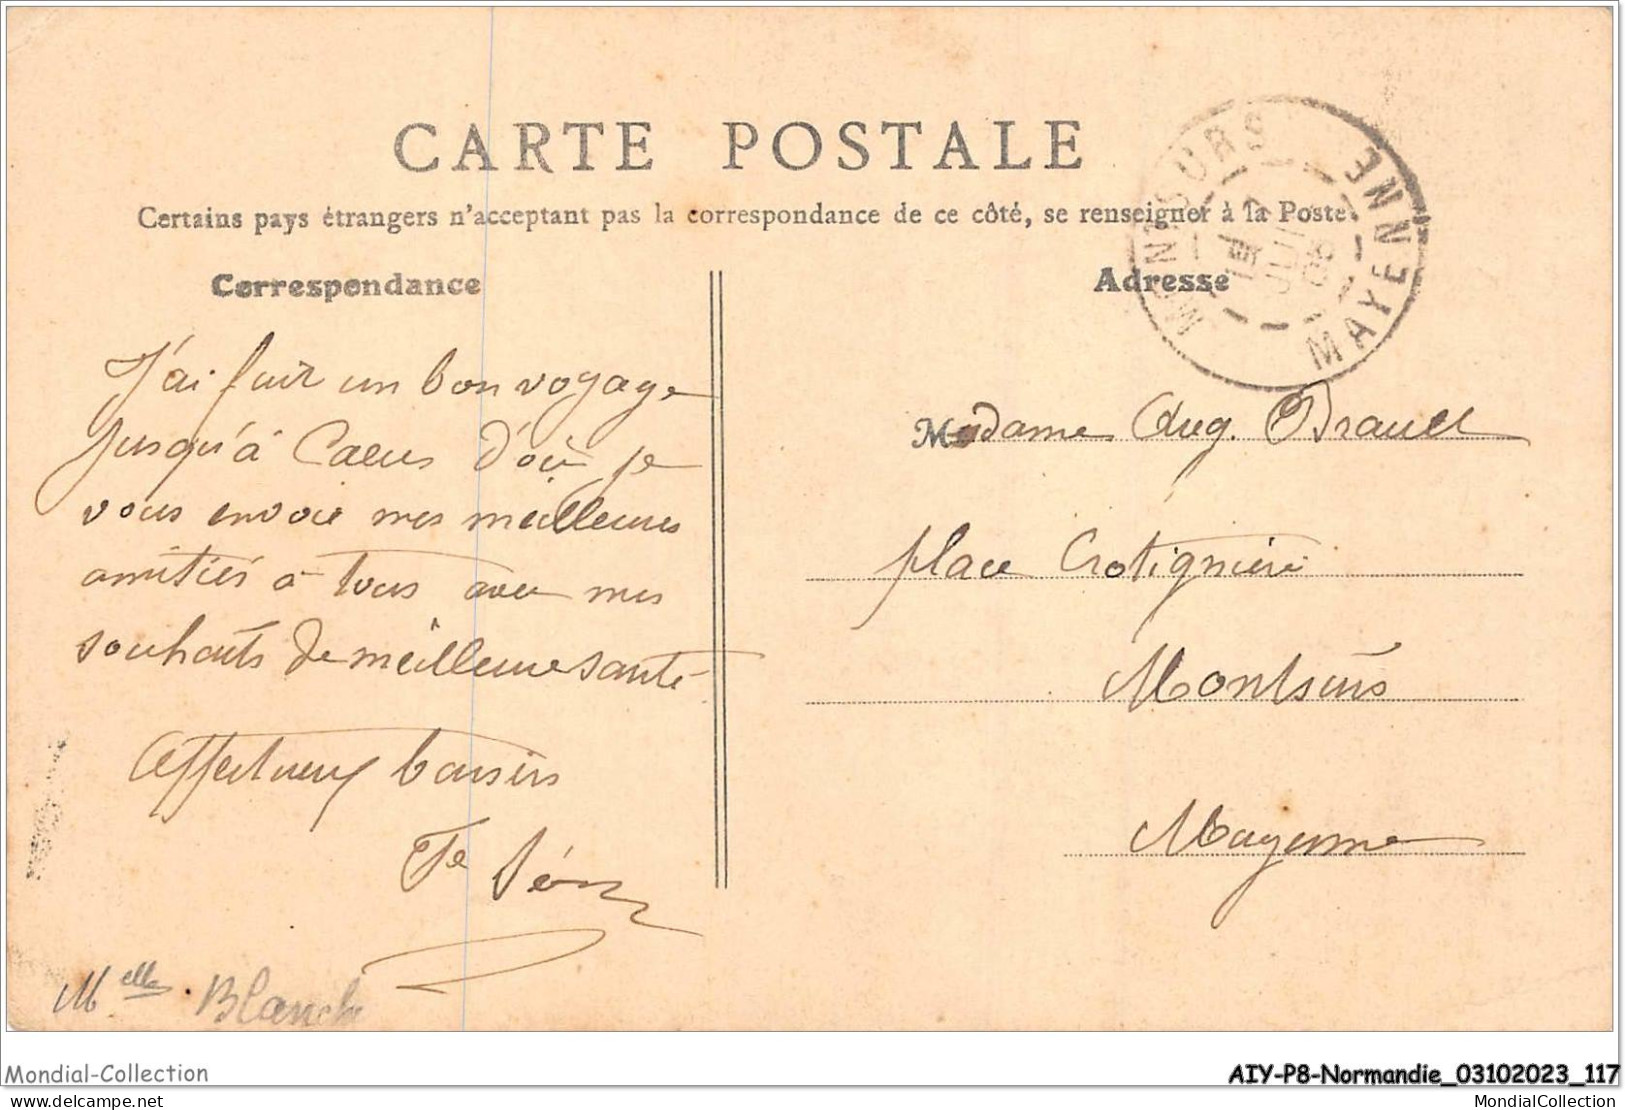 CARTE POSTALE
Certains pays étrangers n'acceptant pas la correspondance de ce côté, se renseigner à la Poste.
Correspondance
J'ai fait un bon voyage
jusqu'à Caen d'où je
vous envoie mes meilleures
amitiés à tous avec mes
souhaits de meilleure santé
Affectueux baisers
Melle Blanche
Adresse
MONTSURS MAYENNE
JUIN
08
Madame Aug.
place Crotignière
Montsurs
Mayenne
Mondial-Collection
AIY-P8-Normandie_03102023_117
delcampe.net
MondialCollection